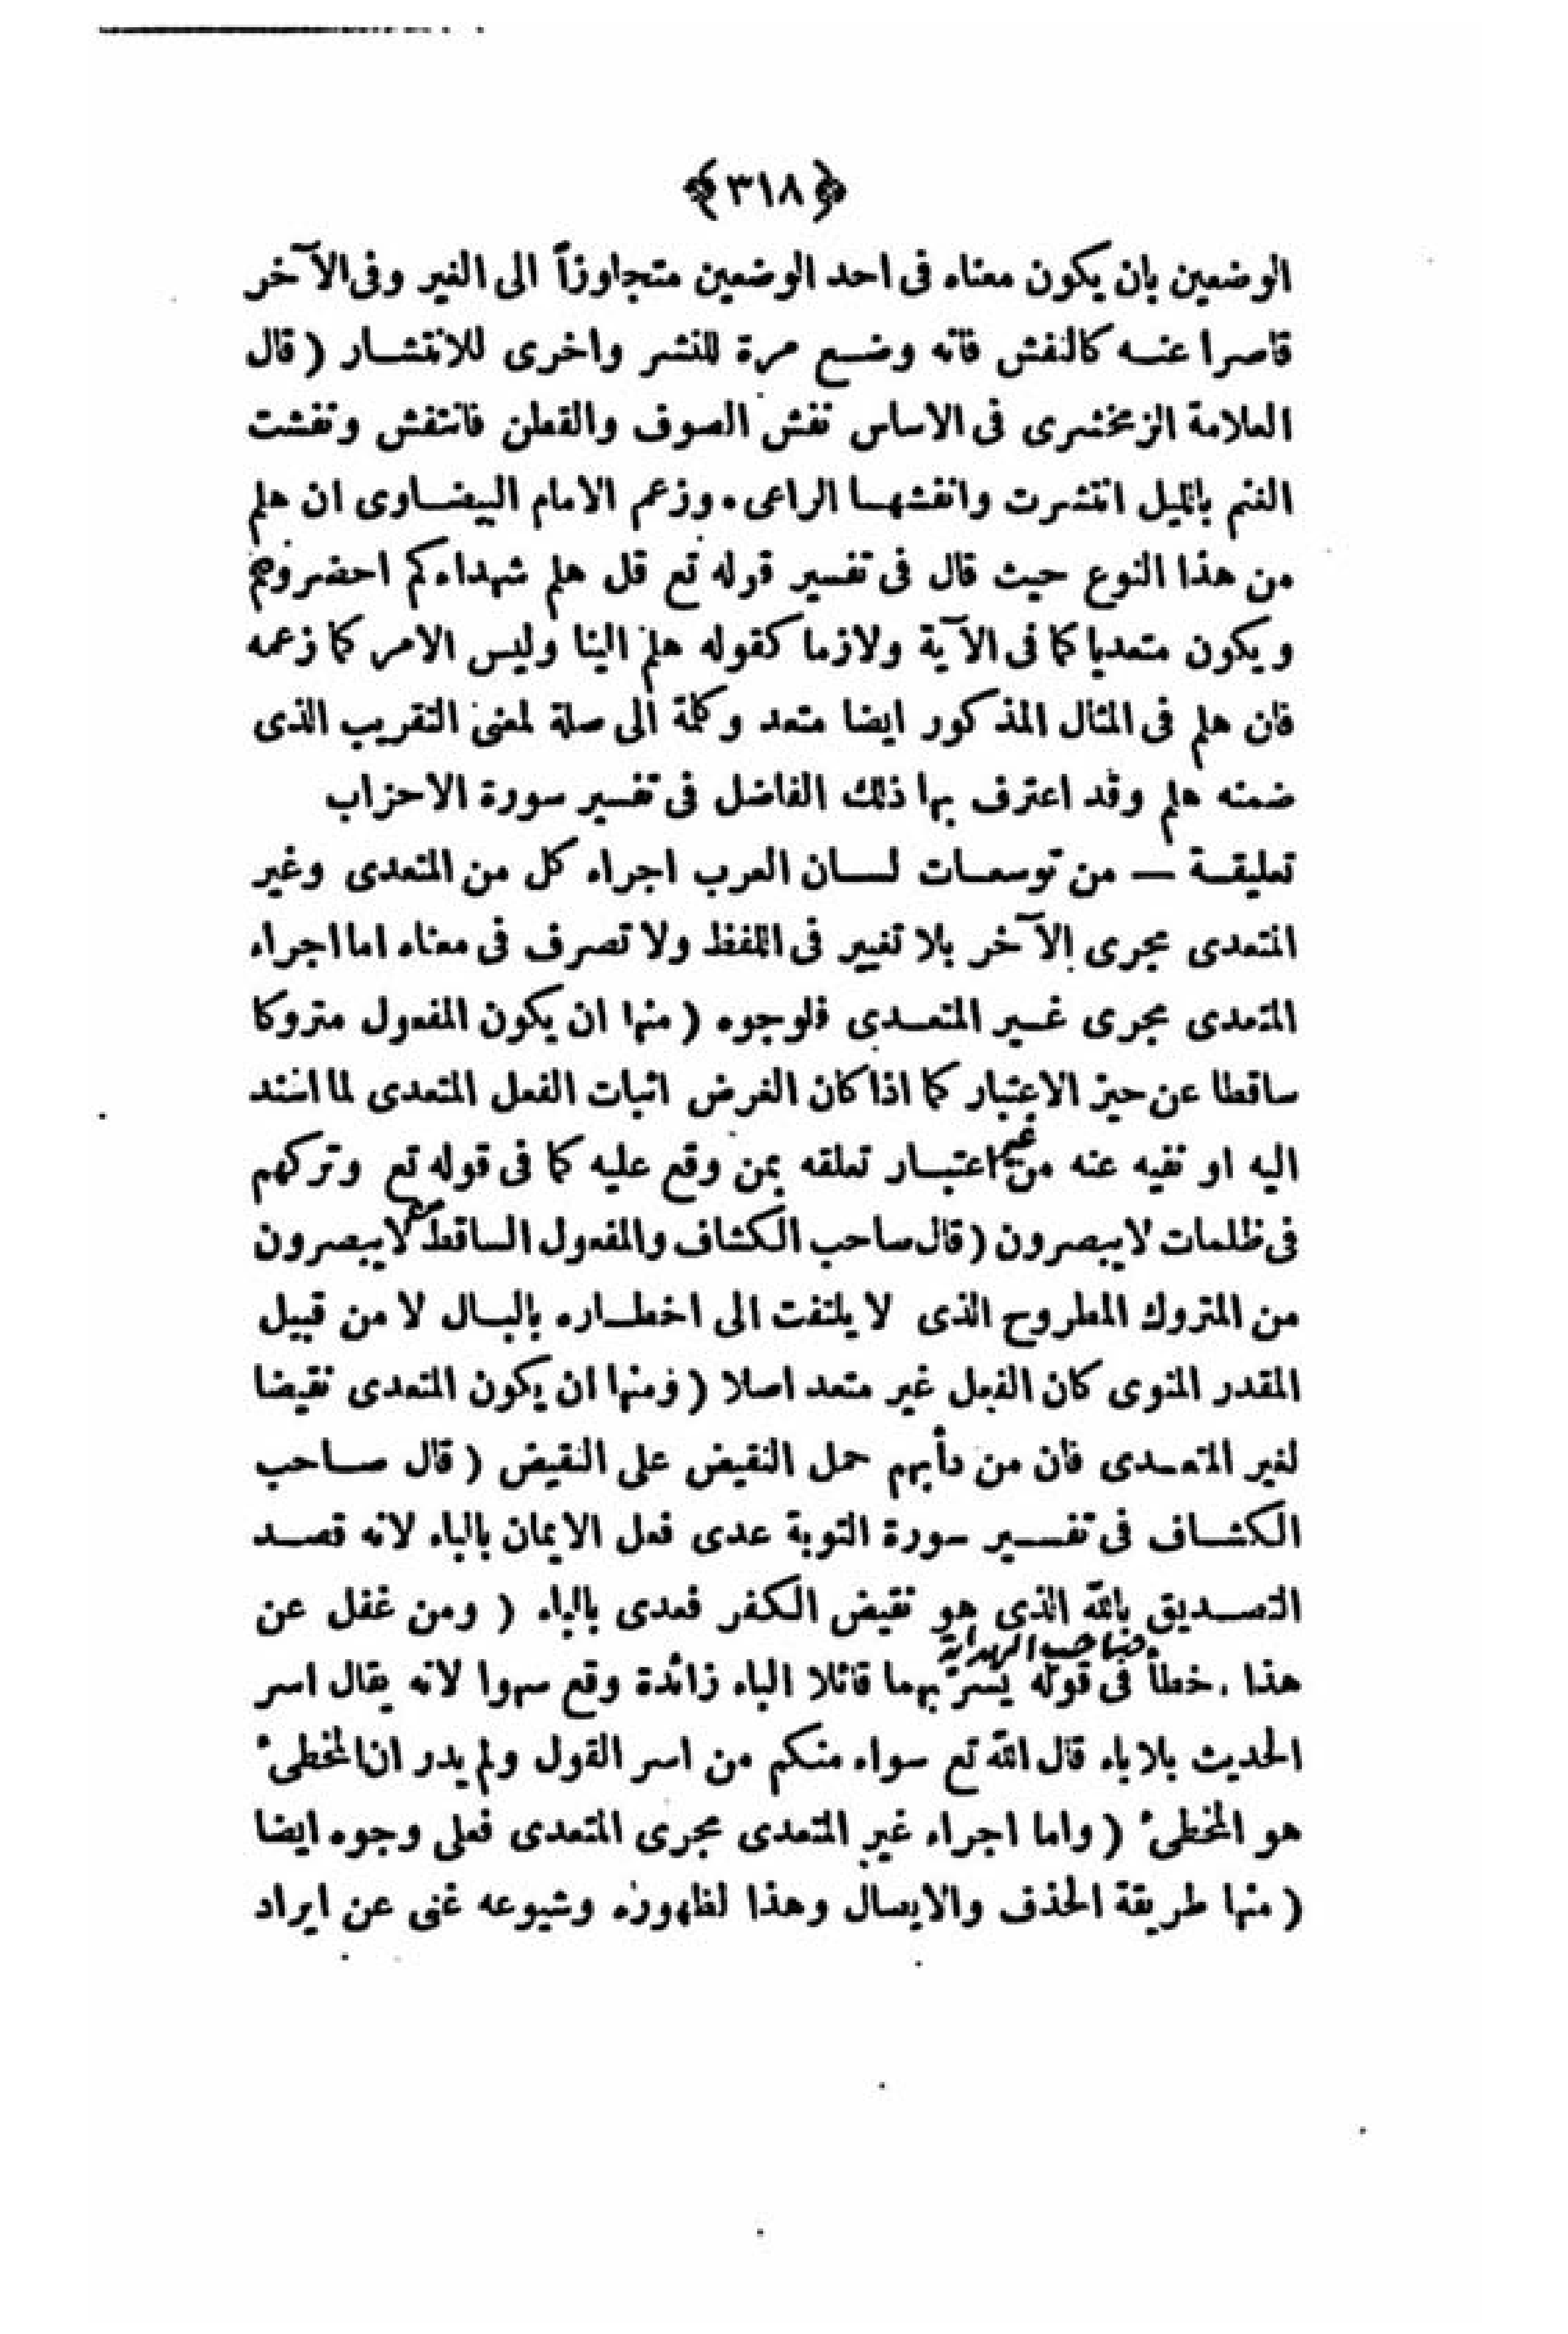 ﴿٣١٨﴾
الوضعين بان يكون معناه فى احد الوضعين متجاوزاً الى الغير وفى الآخر
قاصرا عنه كالنفش فانه وضع مرة للنشر واخرى للانتشار ( قال
العلامة الزمخشرى فى الاساس نفش الصوف والقطن فانتفش ونفشت
الغنم بالليل انتشرت وانفشها الراعى . وزعم الامام البيضاوى ان هلم
من هذا النوع حيث قال فى تفسير قوله تع قل هلم شهداءكم احضروهم
ويكون متعديا كما فى الآية ولازما كقوله هلم الينا وليس الامر كما زعمه
فان هلم فى المثال المذكور ايضا متعد وكلمة الى صلة لمعنى التقريب الذى
ضمنه هلم وقد اعترف بها ذلك الفاضل فى تفسير سورة الاحزاب
تعليقة — من توسعات لسان العرب اجراء كل من المتعدى وغير
المتعدى مجرى الآخر بلا تغيير فى اللفظ ولا تصرف فى معناه اما اجراء
المتعدى مجرى غير المتعدى فلوجوه ( منها ان يكون المفعول متروكا
ساقطا عن حيز الاعتبار كما اذا كان الغرض اثبات الفعل المتعدى لما اسند
اليه او نفيه عنه من غير اعتبار تعلقه بمن وقع عليه كما فى قوله تع وتركهم
فى ظلمات لا يبصرون ( قال صاحب الكشاف والمفعول الساقط من لا يبصرون
من المتروك المطروح الذى لا يلتفت الى اخطاره بالبال لا من قبيل
المقدر المنوى كان الفعل غير متعد اصلا ( ومنها ان يكون المتعدى نقيضا
لغير المتعدى فان من دأبهم حمل النقيض على النقيض ( قال صاحب
الكشاف فى تفسير سورة التوبة عدى فعل الايمان بالباء لانه قصد
التصديق بالله الذى هو نقيض الكفر فعدى بالباء ( ومن غفل عن
هذا . خطأ صاحب الهداية فى قوله يسرّ بهما قائلا الباء زائدة وقع سهوا لانه يقال اسر
الحديث بلا باء قال الله تع سواء منكم من اسر القول ولم يدر ان المخطىء
هو المخطىء ( واما اجراء غير المتعدى مجرى المتعدى فعلى وجوه ايضا
( منها طريقة الحذف والايصال وهذا لظهوره وشيوعه غنى عن ايراد